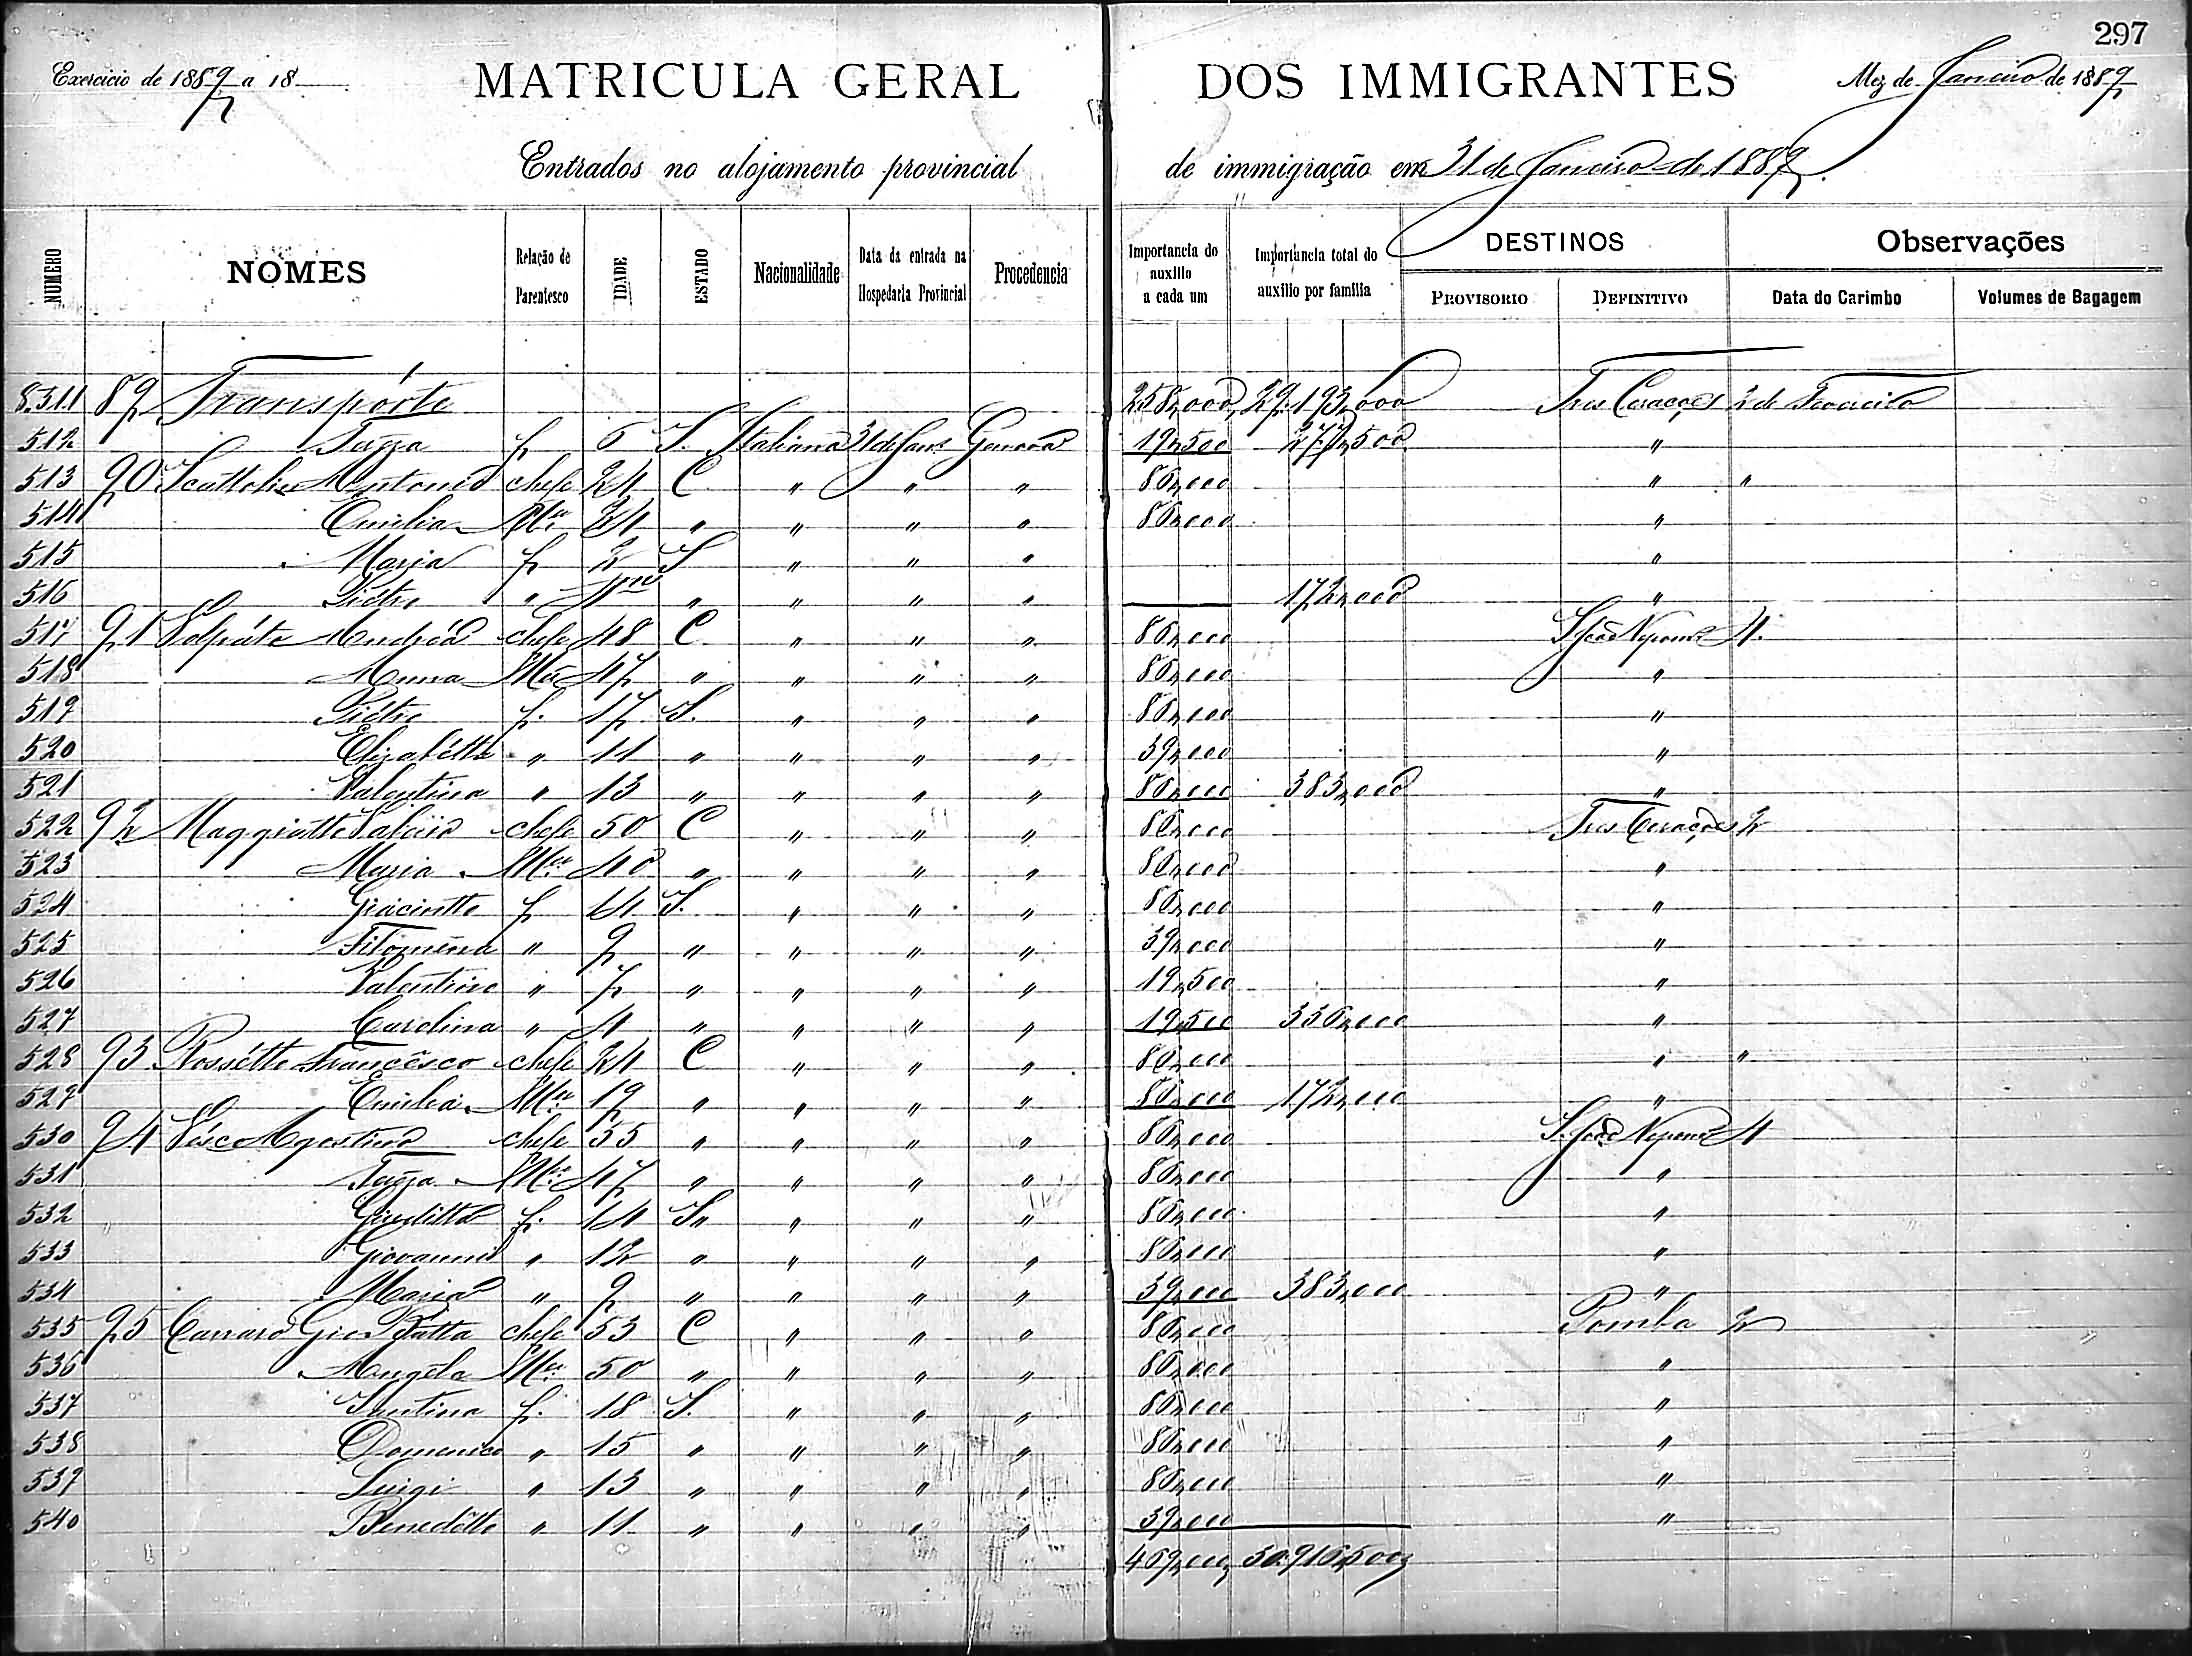 297
Exercicio de 1889 a 18
MATRICULA GERAL DOS IMMIGRANTES
Mez de Janeiro de 1889
Entrados no alojamento provincial de immigração em 31 de Janeiro de 1889.
NUMERO NOMES Relação de Parentesco IDADE ESTADO Nacionalidade Data da entrada na Hospedaria Provincial Procedencia Importancia do auxilio a cada um Importancia total do auxilio por familia DESTINOS PROVISORIO DEFINITIVO Observações Data do Carimbo Volumes de Bagagem
8.511 89 Transpórte 258,000 29.193,000 Tres Corações 2 de Fevereiro
512 f 6 S. Italiana 31 de Janr Genova 19,500 277,500 "
513 90 Antonio chefe 24 C " " " 86,000 " "
514 Emilia Mer 24 " " " " 86,000 "
515 Maria f 2 S " " " "
516 Piétro " " " " " 172,000 "
517 91 Andréa chefe 48 C " " " 86,000 S. João Nepom 4.
518 Anna Mer 47 " " " " 86,000 "
519 Piétro f. 17 S. " " " 86,000 "
520 Elizabétta " 11 " " " " 39,000 "
521 Valentina " 13 " " " " 86,000 383,000 "
522 92 chefe 50 C " " " 86,000 Tres Corações 2
523 Maria Mer 40 " " " " 86,000 "
524 Giacintto f 14 S. " " " 86,000 "
525 Filoména " 9 " " " " 39,000 "
526 Valentino " 7 " " " " 19,500 "
527 Carolina " 4 " " " " 19,500 336,000 "
528 93 Rossétto Francêsco chefe 24 C " " " 86,000 " "
529 Emilia Mer 19 " " " " 86,000 172,000 "
530 94 Agostino chefe 55 " " " " 86,000 S. João Nepom 4
531 Mer 47 " " " " 86,000 "
532 Giuditta f. 14 S " " " 86,000 "
533 Giovanni " 12 " " " " 86,000 "
534 Maria " 9 " " " " 39,000 383,000 "
535 95 Canaro Gio Batta chefe 53 C " " " 86,000 Pomba 2
536 Angéla Mer 50 " " " " 86,000 "
537 Santina f. 18 S. " " " 86,000 "
538 Domenico " 15 " " " " 86,000 "
539 Luigi " 13 " " " " 86,000 "
540 Benedétto " 11 " " " " 39,000 "
469,000 30.916,500